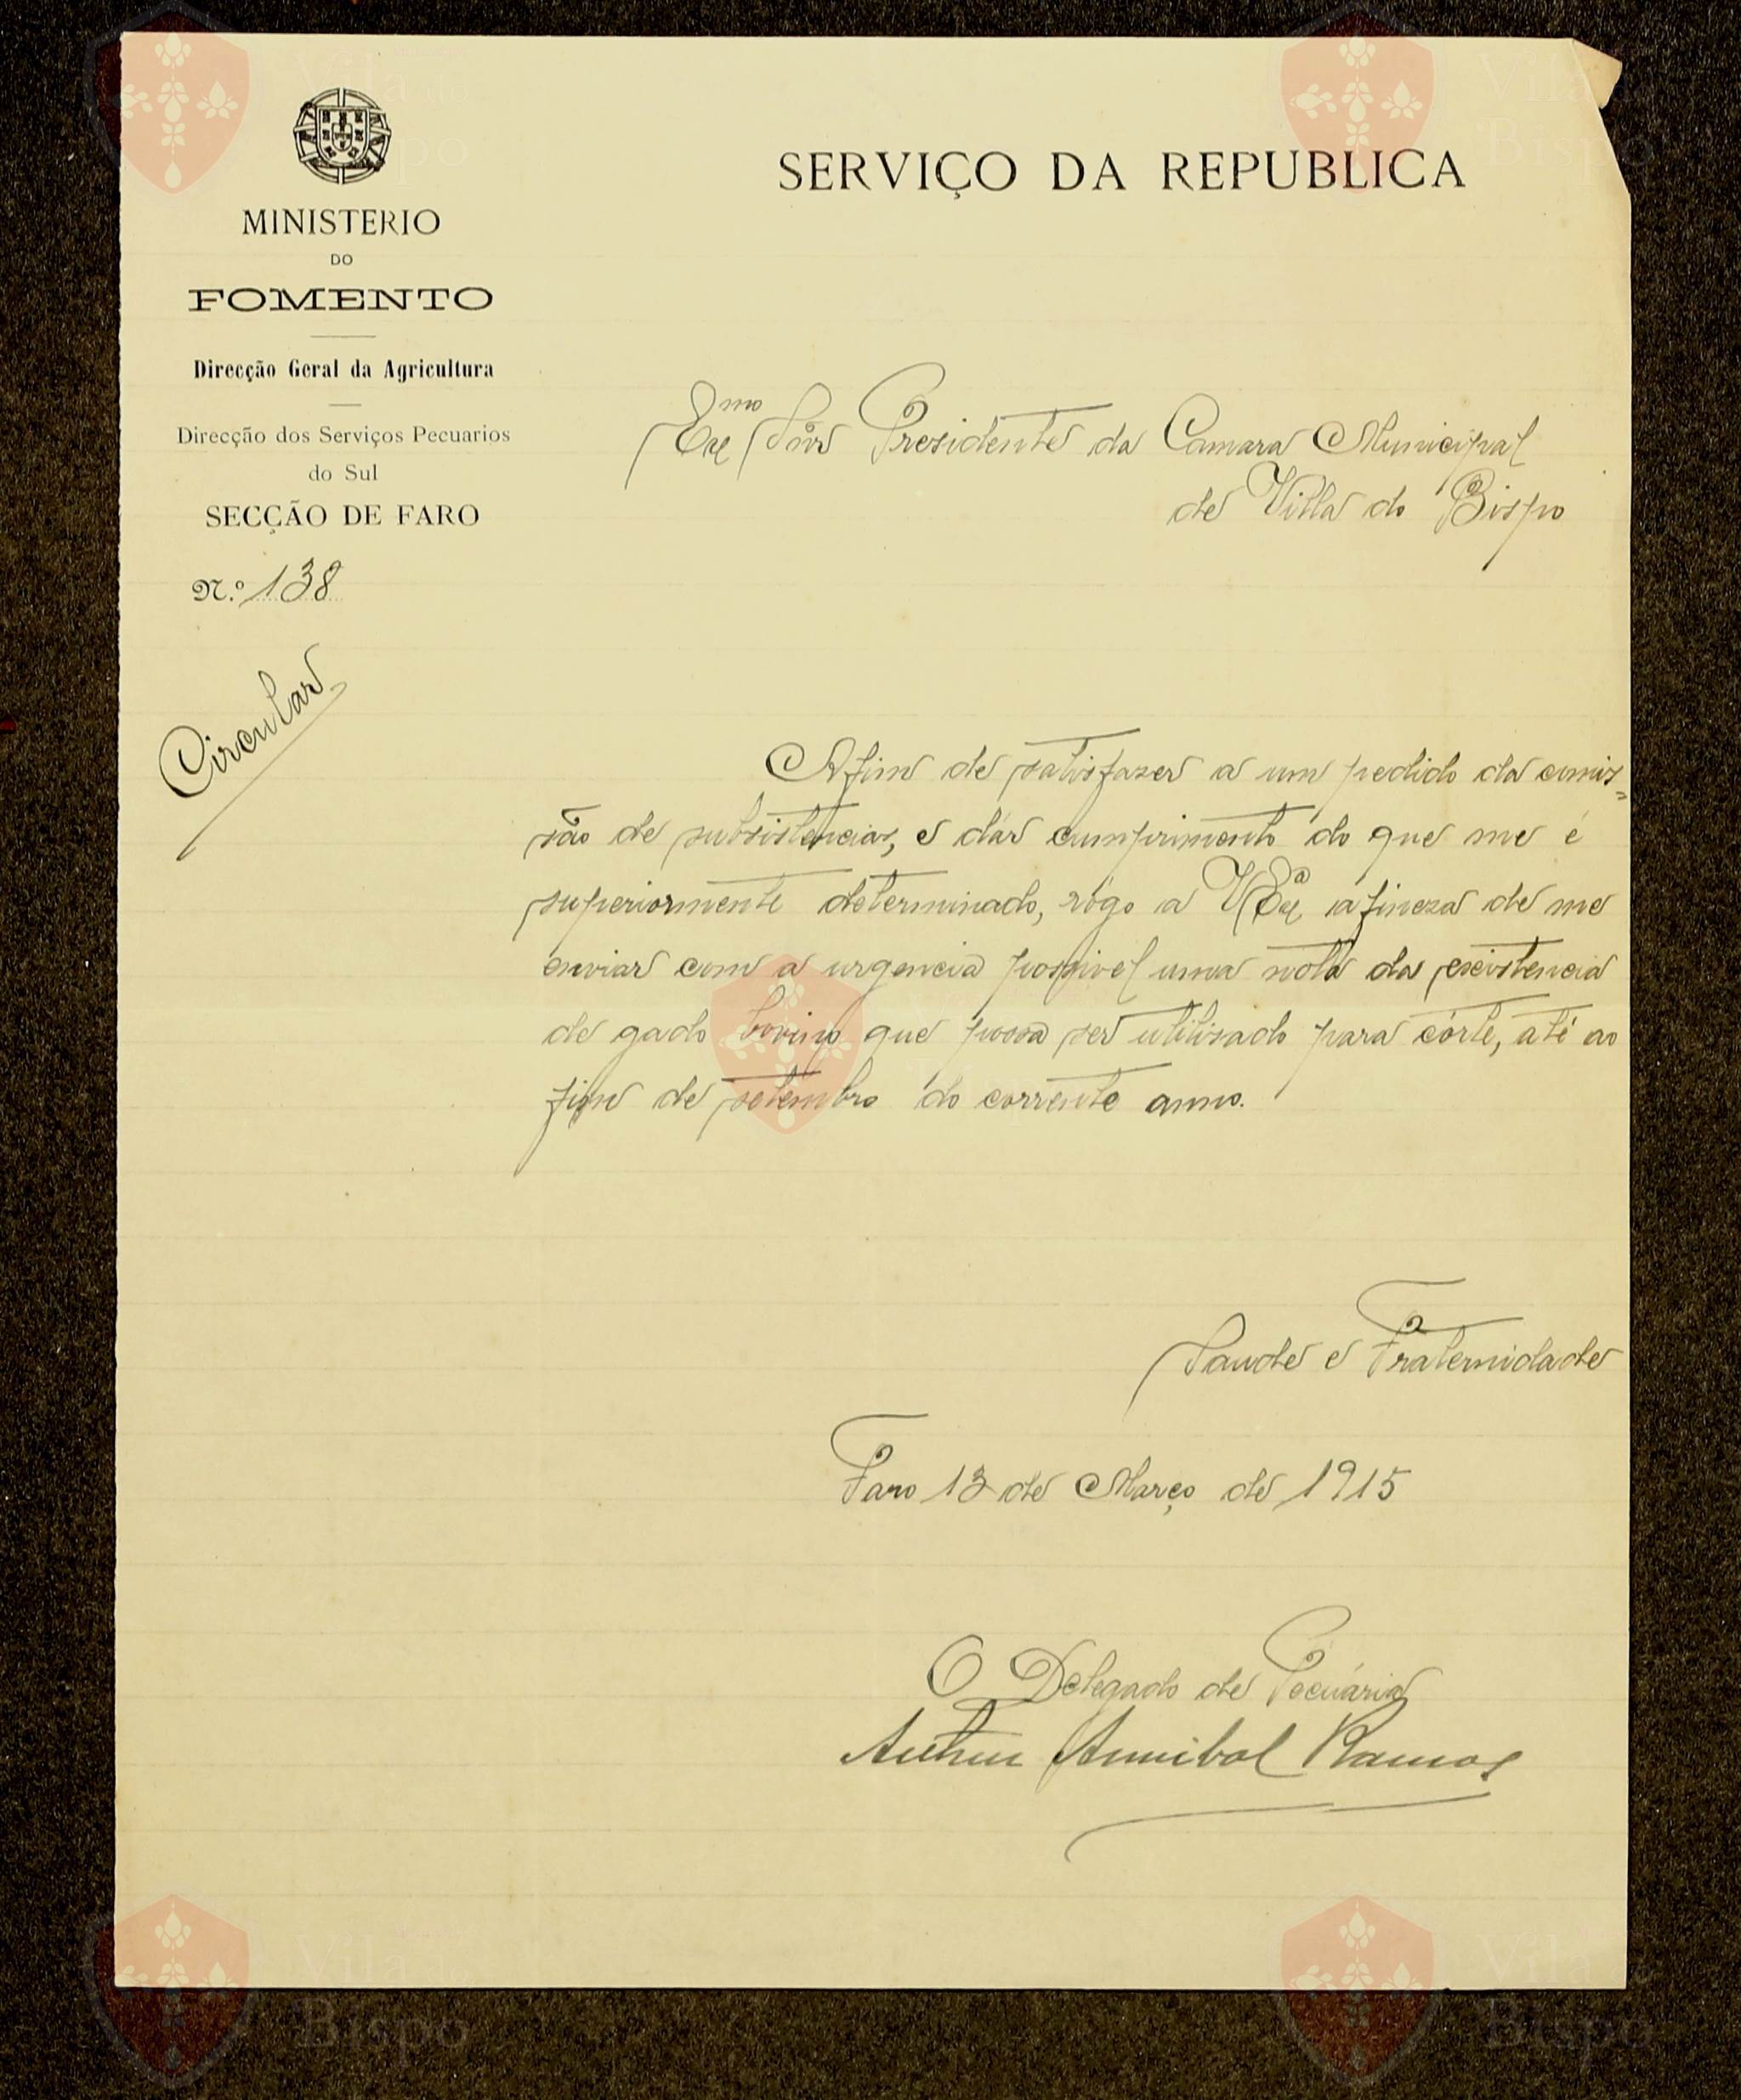 SERVIÇO DA REPUBLICA
MINISTERIO
DO
FOMENTO
Direcção Geral da Agricultura
Direcção dos Serviços Pecuarios
do Sul
SECÇÃO DE FARO
N.º 138
Circular
Exmo Snr Presidente da Camara Municipal
de Villa do Bispo
Afim de satisfazer a um pedido da comis=
são de subsistencias, e dár cumprimento do que me é
superiormente determinado, rógo a V Exa a fineza de me
enviar com a urgencia possivel uma nota da existencia
de gado bovino que possa ser utilisado para córte, até ao
fim de setembro do corrente anno.
Saude e Fraternidade
Faro 13 de Março de 1915
O Delegado de Pecuária
Arthur Annibal Ramos
Vila do
Bispo